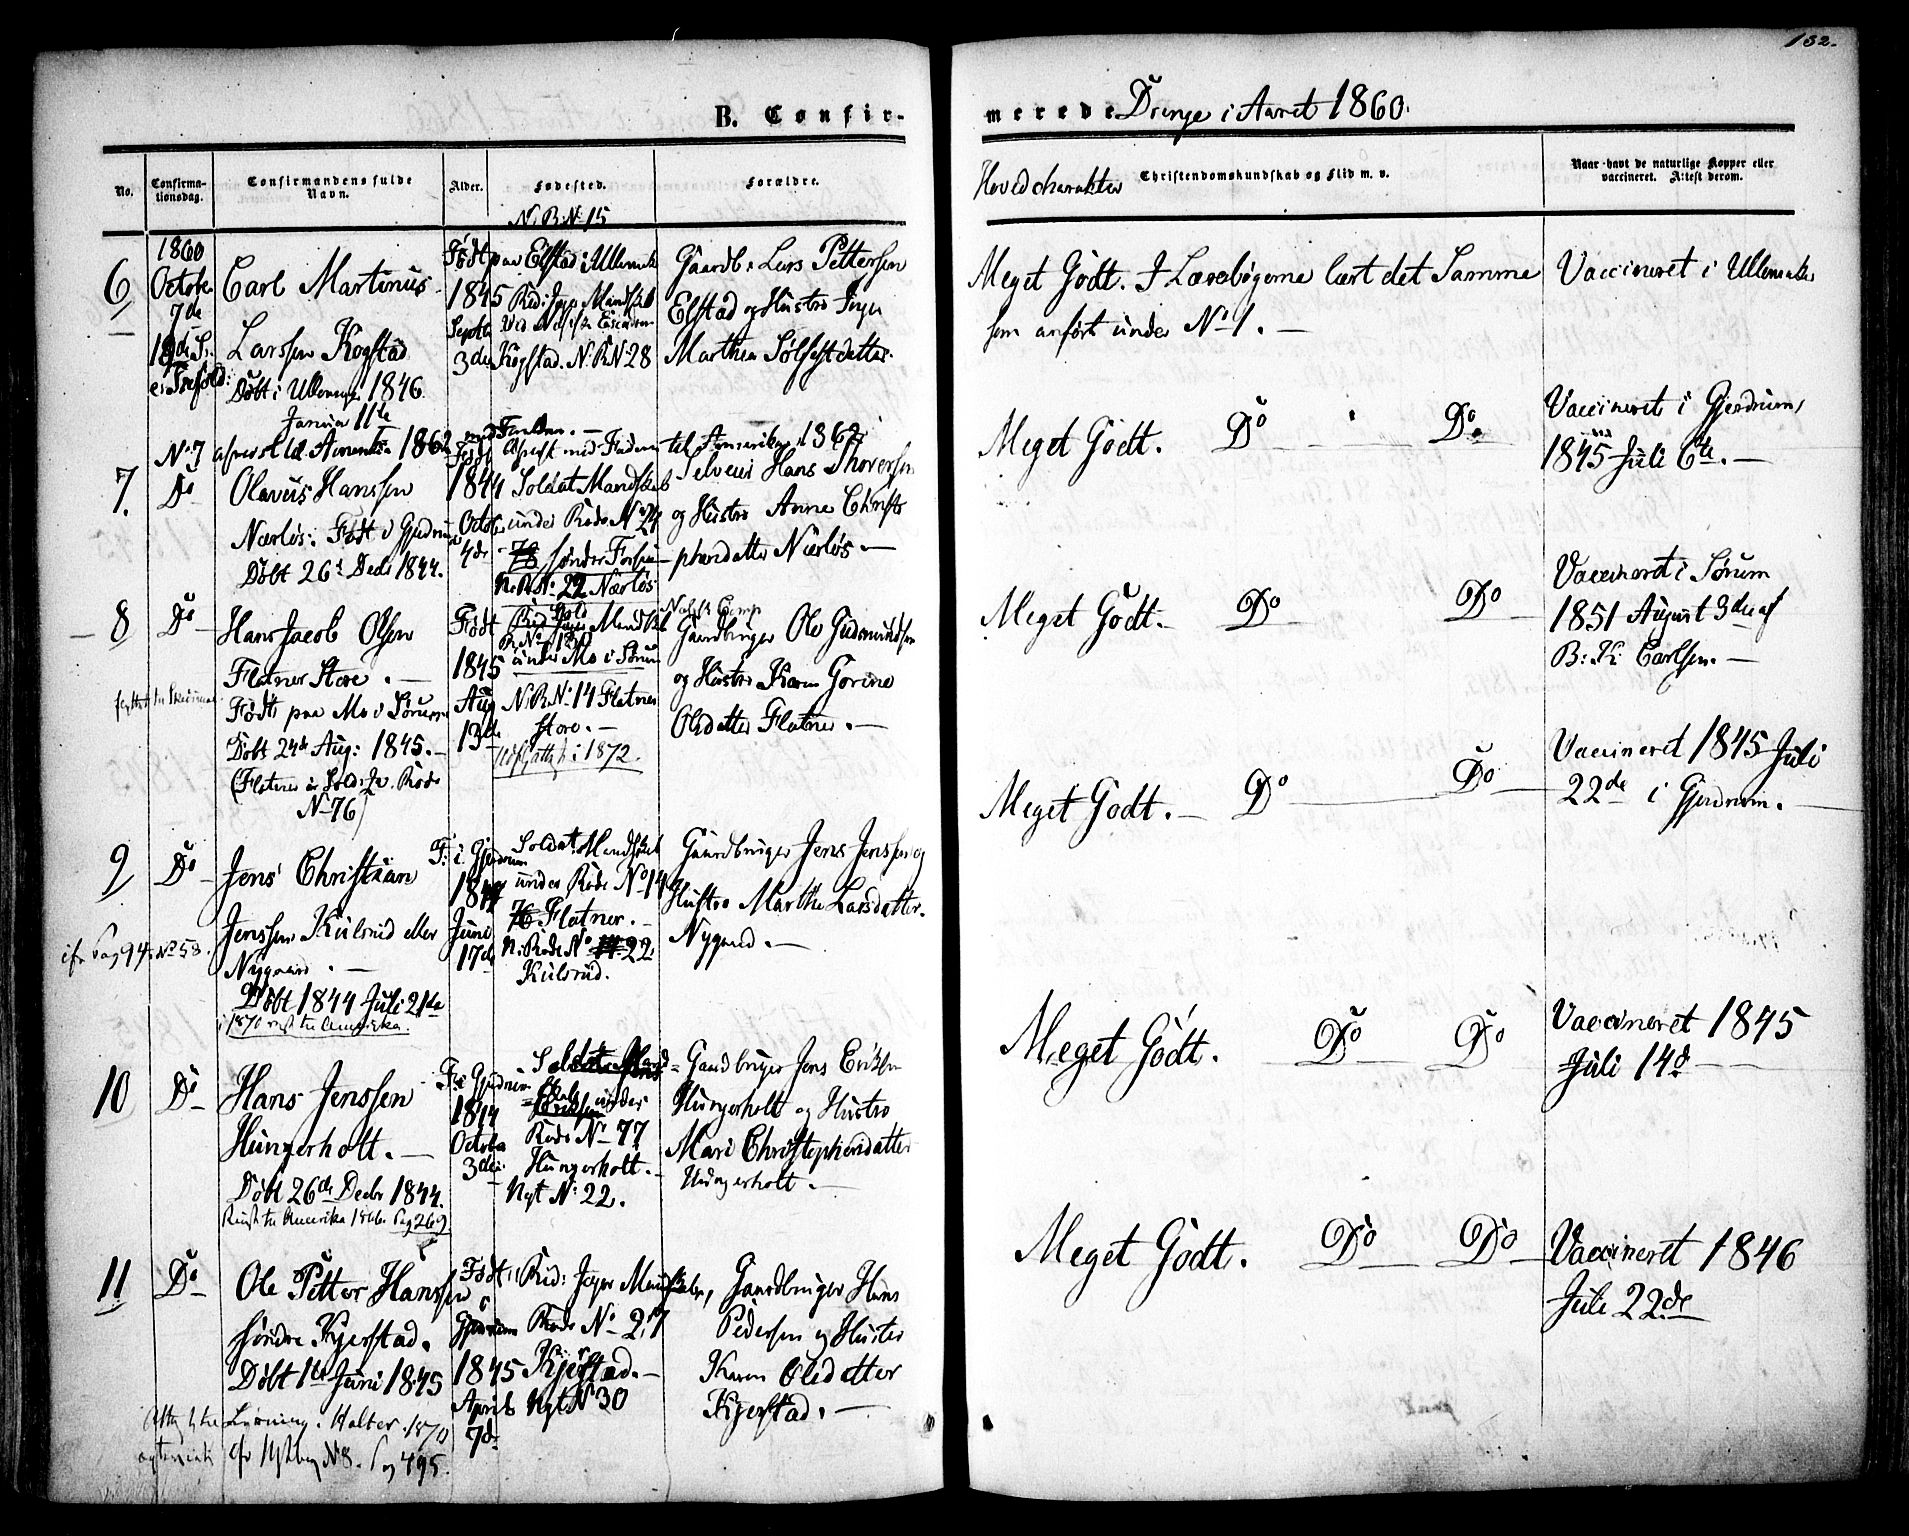 132.
B. Confirmerede Drenge i Aaret 1860.
No.
Confirmationsdag.
Confirmandens fulde Navn.
Alder.
Fødested.
Forældre.
Hovedcharakter
Christendomskundskab og Flid m. v.
Naar havt de naturlige Kopper eller
vaccineret. Attest derom.
N. R. N. 15
6
1860
Octobr
7de
Carl Martinus
Larssen Kogstad
Døbt i Ullens. 1846
Januar 11te
Født
1845
Septb
3de
paa Elstad i Ullensak
Rid: Jæger Mandskab
Kogstad. N. R. N. 28
Gaardb: Lars Pettersen
Elstad og Hustro
Marthea
Meget Godt. I Lærebøgerne lært det Samme
som anført under No 1. —
Vaccineret i Ullensaker
No 7 afreist til Amerika 1862 med Forældre. —
Afreist med Faderen til Amerika 1862
7.
Do
Olavus Hanssen
Nærløs: Født i Gjerdrum
Døbt 26d Decbr 1844.
Født
1844
Octobr
4de
Soldat Mandskab
under Rode No 24
78 søndre
N. R. No. 22 Nærløs
Selveier Hans Thoresen
og Hustro Anne Christo-
phersdatter Nærløs. —
Meget Godt. Do Do
Vaccineret i Gjerdrum
1845 Juli 6te. —
8
Do
Hans Jacob Olsen
Flatner Store. —
Født paa Mo i Sørum
Døbt 24de Aug: 1845. —
(Flatner er Sold: Rode
No 76)
Født
1845
Aug
13de
Mandskab
R. No. 130
under Mo i Sørum
N. R. No. 14 Flatner
store. —
i 1872.
Gaardbruger Ole Gudmundsen
og Hustro Karen Gorine
Olsdatter Flatner. —
Meget Godt. — Do Do
Vaccineret i Sørum
1851 August 3die af
B: K: Carlsen. —
9
Do
cfr Pag 94. No 58.
Jens Christian
Jenssen Kulsrud eller
Nygaard. —
Døbt 1844 Juli 21de
i 1870 reist til Amerika.
F: i Gjerdrum
1844
Juni
17de
Soldat: Mandskab
under Rode No 14
76 Flatner. —
N. Rode No 14. 22,
Kulsrud.
Gaardbruger Jens Jenssen og
Hustro Marthe Larsdatter
Nygaard. —
Meget Godt. — Do Do
Vaccineret 1845 Juli
22de i Gjerdrum. —
10
Do
Hans Jenssen
Hungerholt. —
Døbt 26de Decbr 1844.
Reist til Amerika 1866. Pag 269.
F: i Gjerdrum
1844
Octobr
3die
under
Rode No 77
Hungerholt. —
Nyt No 22.
Gaardbruger Jens Eriksen
Hungerholt og Hustro
Mari Christophersdatter
Hungerholt. —
Meget Godt. Do Do
Vaccineret 1845
Juli 14de
11
Do
Ole Petter Hanssen
søndre Kjerstad.
Døbt 1te Juni 1845
1870
495.
Født i
Gjerdrum
1845
April
7de
Rid: Jæger Mandskab,
Rode No 27
Kjerstad. —
Nyt No 30
Gaardbruger Hans
Pedersen og Hustro
Karen Olsdatter
Kjerstad. —
Meget Godt. Do Do
Vaccineret 1846
Juli 22de